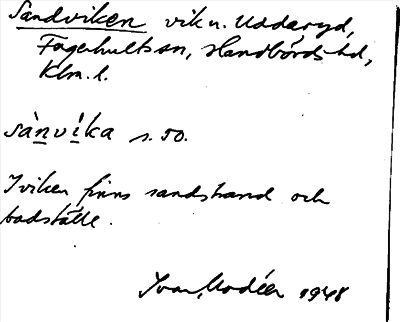 Sandviken vik n. Uddaryd,
Fagerhults sn, Handbörds hd,
Klm. l.
sànvíka s. 50.
I viken finns sandstrand och
badställe.
Ivar Modéer 1948